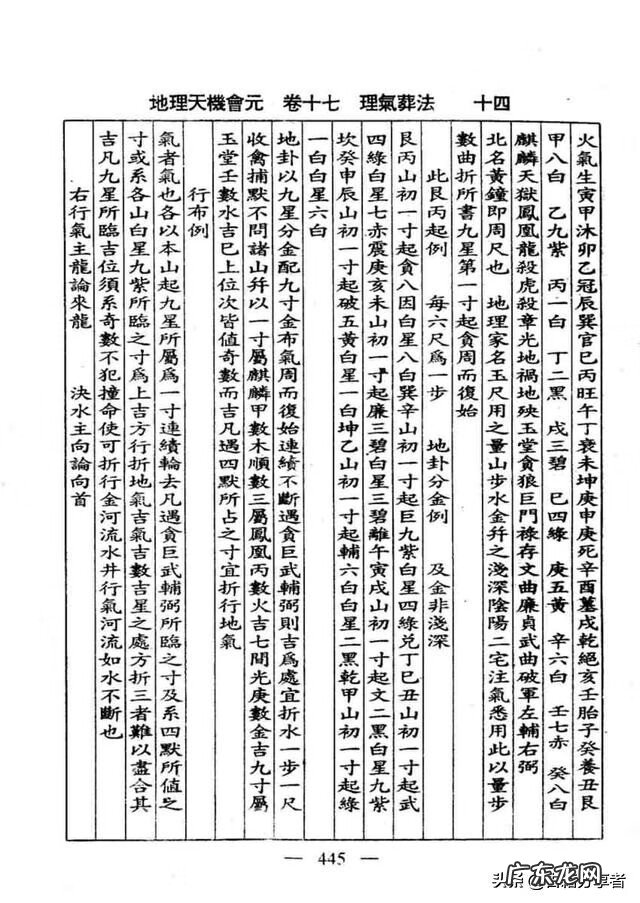 地理天機會元　卷十七　理氣葬法　　十四
火氣生寅甲沐卯乙冠辰巽官巳丙旺午丁衰未坤庚申庚死辛酉墓戌乾絕亥壬胎子癸養丑艮
甲八白　乙九紫　丙一白　丁二黑　戌三碧　巳四綠　庚五黃　辛六白　壬七赤　癸八白
麒麟天獄鳳凰龍殺虎殺章光地禍地殃玉堂貪狼巨門祿存文曲廉貞武曲破軍左輔右弼
北名黃鐘即周尺也　地理家名玉尺用之量山步水金弁之淺深陰陽二宅注氣悉用此以量步
數曲折所書九星第一寸起貪周而復始
此艮丙起例　每六尺為步　地卦分金例　及金非淺深
艮丙山初一寸起貪八因白星八白巽辛山初一寸起巨九紫白星四綠兌丁巳丑山初一寸起武
四綠白星七赤震庚亥未山初一寸起廉三碧白星三碧離午寅戌山初一寸起文二黑白星九紫
坎癸申辰山初一寸起破五黃白星一白坤乙山初一寸起輔六白白星二黑乾甲山初一寸起綠
一白白星六白
地卦以九星分金配九寸金布氣周而復始連續不斷遇貪巨武輔弼則吉為處宜折水一步一尺
收禽捕默不問諸山弁以一寸屬麒麟甲數木順數三屬鳳凰丙數火吉七間光庚數金吉九寸屬
玉堂壬數水吉巳上位次皆值奇數而吉凡遇四默所占之寸宜折行地氣
行布例
氣者氣也各以本山起九星所屬為一寸連續輪去凡遇貪巨武輔弼所臨之寸及系四默所值之
寸或系各山白星九紫所臨之寸為上吉方行折地氣吉氣吉數吉星之處方折三者難以盡合其
吉凡九星所臨吉位須系奇數不犯撞命使可折行金河流水井行氣河流如水不斷也
右行氣主龍論來龍　決水主向論向首
— 445 —
头条
享者
广东龙网